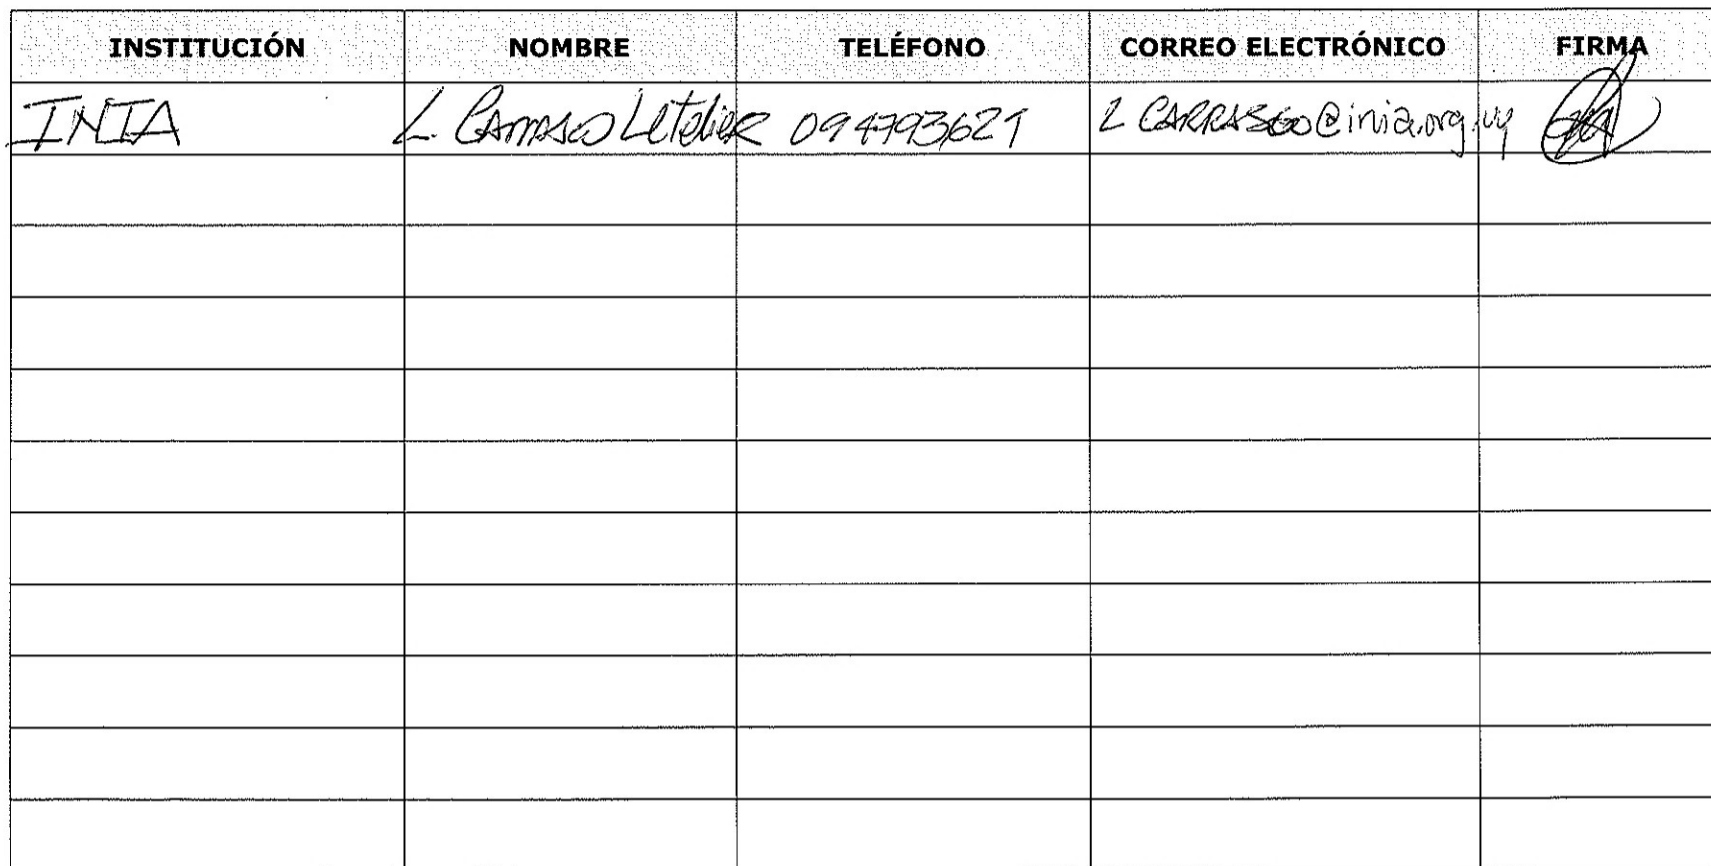 INSTITUCIÓN NOMBRE TELÉFONO CORREO ELECTRÓNICO FIRMA
INIA L. Carrasco Letelier 094793621 LCARRASCO@inia.org.uy